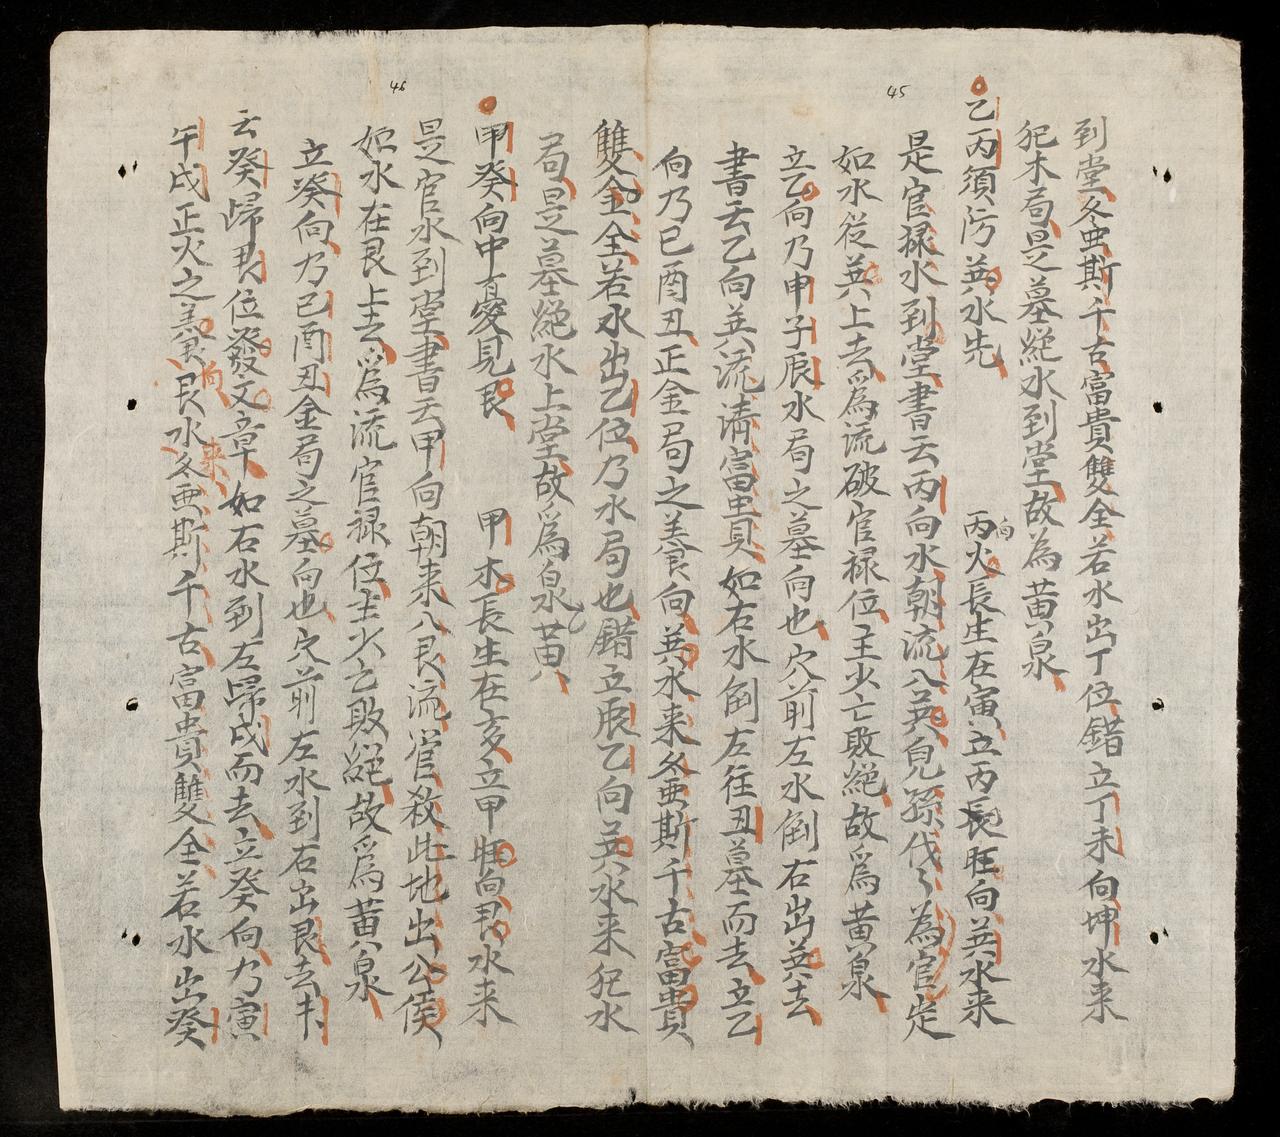 45
到堂冬虫斯千古富貴雙全若水出丁位錯立丁未向坤水来
犯木局是墓絕水到堂故為黃泉
乙丙須防巽水先 丙火長生在寅立丙長旺向巽水来
向
是官祿水到堂書云丙向水朝流入巽兒孫代々為官定
如水從巽上去爲流破官祿位主火亡敗絕故爲黃泉
立乙向乃申子辰水局之墓向也穴前左水倒右出巽去
書云乙向巽流清富貴如右水倒左往丑墓而去立乙
向乃巳酉丑正金局之養向巽水来冬虫斯千古富貴
46
雙全全若水出乙位乃水局也錯立辰乙向巽水来犯水
局是墓絕水上堂故爲泉黃
甲癸向中憂見艮 甲木長生在亥立甲旺向艮水来
是官水到堂書云甲向朝来入艮流官殺此地出公侯
如水在艮上去爲流官祿位主火亡敗絕故爲黃泉
立癸向乃巳酉丑金局之墓向也穴前左水到右出艮去
云癸歸艮位發文章如右水到左歸戌而去立癸向乃寅
午戌正火之養艮水冬虫斯千古富貴雙全若水出癸
向
来